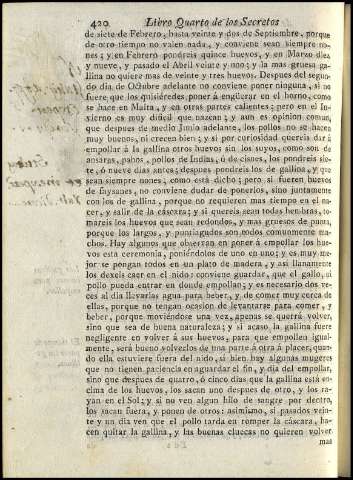 420 Libro Quarto de los Secretos
de siete de Febrero, hasta veinte y dos de Septiembre, porque
de otro tiempo no valen nada, y conviene sean siempre no-
nes; y en Febrero pondreis quince huevos, y en Marzo diez
y nueve, y pasado el Abril veinte y uno; y la mas gruesa ga-
llina no quiere mas de veinte y tres huevos. Despues del segun-
do dia de Octubre adelante no conviene poner ninguna, si no
fuere que los quisiéredes poner á engüerar en el horno, como
se hace en Malta, y en otras partes calientes; pero en el in-
vierno es muy dificil que nazcan; y aun es opinion comun,
que despues de medio Junio adelante, los pollos no se hacen
muy buenos, ni crecen bien; y si por curiosidad quereis dar á
empollar á la gallina otros huevos sin los suyos, como son de
ansaras, pabos, pollos de Indias, ó de cisnes, los pondreis sie-
te, ó nueve dias antes; despues pondreis los de gallina, y que
sean siempre nones, como está dicho; pero si fueren huevos
de faysanes, no conviene dudar de ponerlos, sino juntamente
con los de gallina, porque no requieren mas tiempo en el na-
cer, y salir de la cáscara; y si quereis sean todas hembras, to-
mareis los huevos que sean redondos, y mas gruesos de punta,
porque los largos, y puntiagudos son todos comunmente ma-
chos. Hay algunos que observan en poner á empollar los hue-
vos esta ceremonia, poniéndolos de uno en uno; y es muy me-
jor se pongan todos en un plato de madera, y asi llanamente
los dexeis caer en el nido: conviene guardar, que el gallo, ni
pollo pueda entrar en donde empollan; y es necesario dos ve-
ces al dia llevarlas agua para beber, y de comer muy cerca de
ellas, porque no tengan ocasion de levantarse para comer, y
beber, porque moviéndose una vez, apenas se querrá volver,
sino que sea de buena naturaleza; y si acaso la gallina fuere
negligente en volver á sus huevos, para que empollen igual-
mente, será bueno volverlos de una parte á otra á placer, quan-
do ella estuviere fuera del nido, si bien hay algunas mugeres
que no tienen paciencia en aguardar el fin, y dia del empollar,
sino que despues de quatro, ó cinco dias que la gallina está en-
cima de los huevos, los sacan uno despues de otro, y los ra-
yan en el Sol; y si no ven algun hilo de sangre por dentro,
los sacan fuera, y ponen de otros: asimismo, si pasados vein-
te y un dia ven que el pollo tarda en romper la cáscara, ha-
cen quitar la gallina, y las buenas cluecas no quieren volver
mas